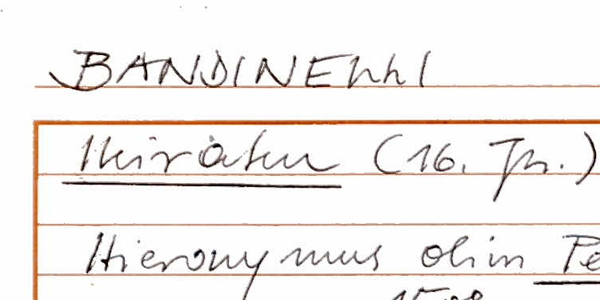 BANDINELLI
Heiraten (16. Jh.)
Hieronymus olim